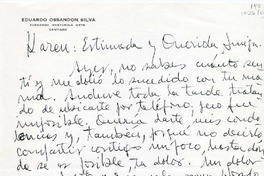 EDUARDO OSSANDON SILVA
SANTIAGO
Karen: Estimada y Querida Amiga.
Ayer, no sabes cuánto sen-
tí y me dolió lo sucedido con tu ma-
má. Anduve toda la tarde tratan-
do de ubicarte por teléfono, pero fue
imposible. Quería darte mis condo-
lencias y, también, porqué no decirlo
compartir contigo un poco, hasta don-
de se es posible, tu dolor. Un dolor